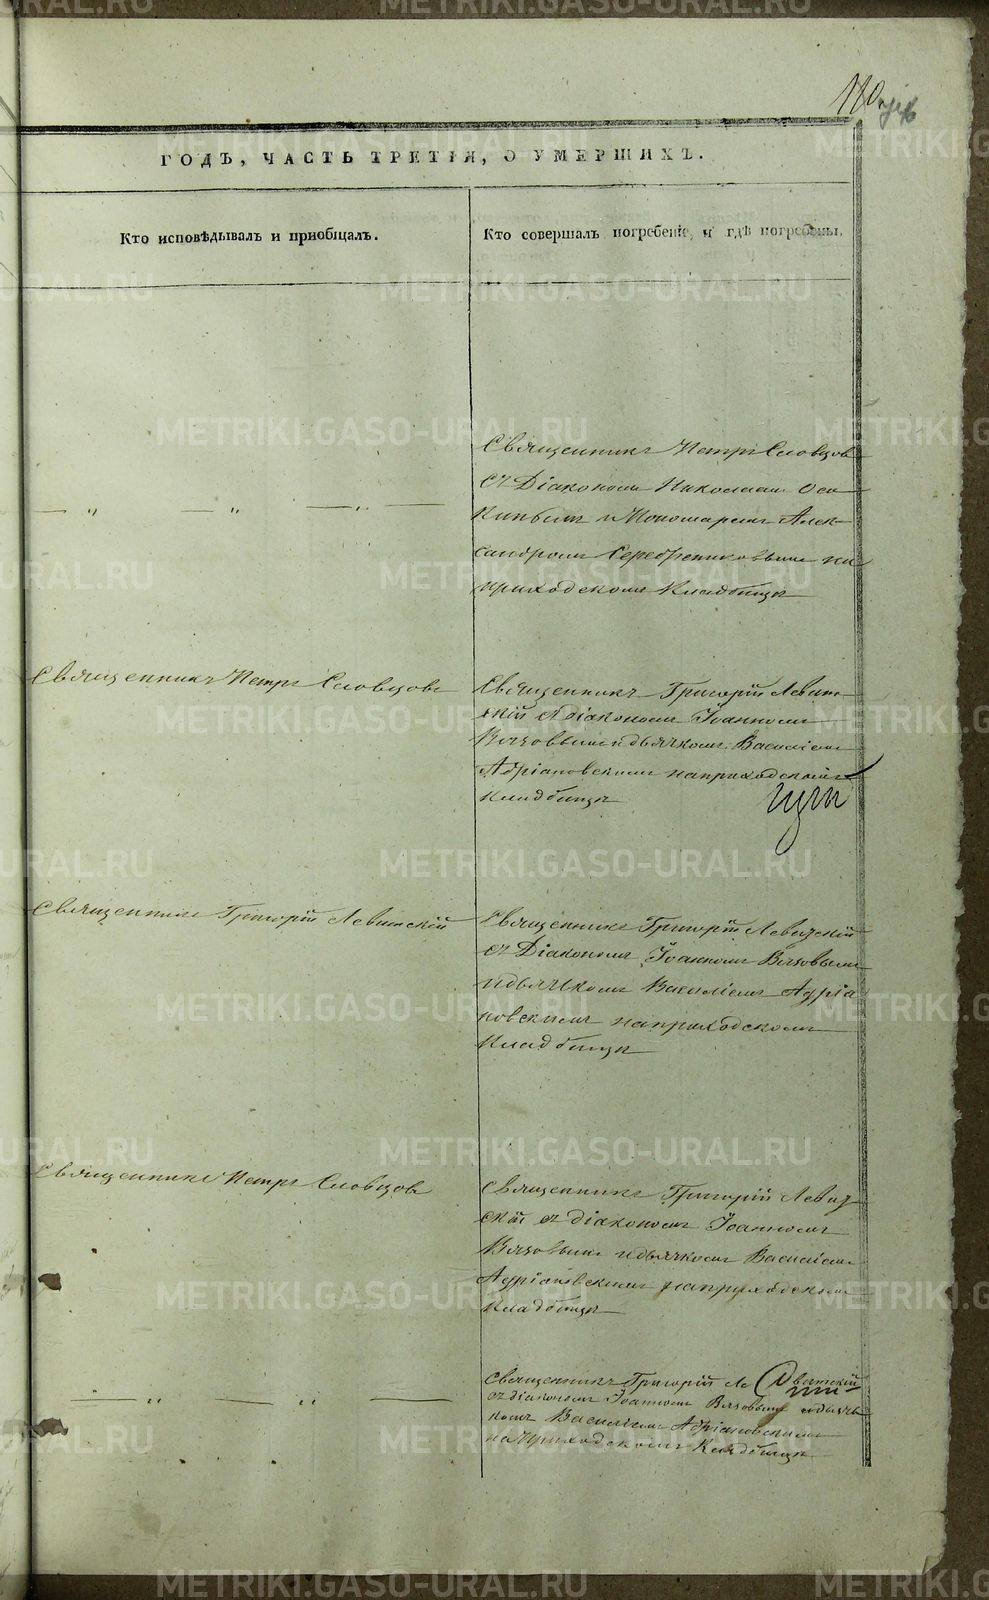 110
ГОДЪ, ЧАСТЬ ТРЕТІЯ, О УМЕРШИХЪ.
Кто исповѣдывалъ и пріобщалъ.
Кто совершалъ погребеніе, и гдѣ погребены.
Священникъ Петръ Словцов
съ Діакономъ Николаем Оси
пинымъ и Пономаремъ Алек-
сандромъ Серебрениковымъ на
приходскомъ Кладбищѣ
— „ — „ — „ —
Священникъ Петръ Словцовъ
Священникъ Григорій Левит-
скій съ діакономъ Іоанномъ
Вязовымъ и дьячкомъ Василіемъ
Адріановскимъ на приходскомъ
Кладбищѣ
Священникъ Григорій Левитскій
Священникъ Григорій Левитскій
съ Діакономъ Іоанномъ Вязовымъ
и дьячкомъ Василіемъ Адріа
новскимъ на приходскомъ
Кладбищѣ
Священникъ Петръ Словцов
Священникъ Григорій Левит
скій съ діакономъ Іоанномъ
Вязовымъ и дьячкомъ Василіем
Адріановскимъ на приходскомъ
Кладбищѣ
— „ — „ —
Священникъ Григорій Левитскій
съ діакономъ Іоанномъ Вязовымъ и дьяч
комъ Василіемъ Адріановскимъ
на приходскомъ Кладбищѣ
METRIKI.GASO-URAL.RU